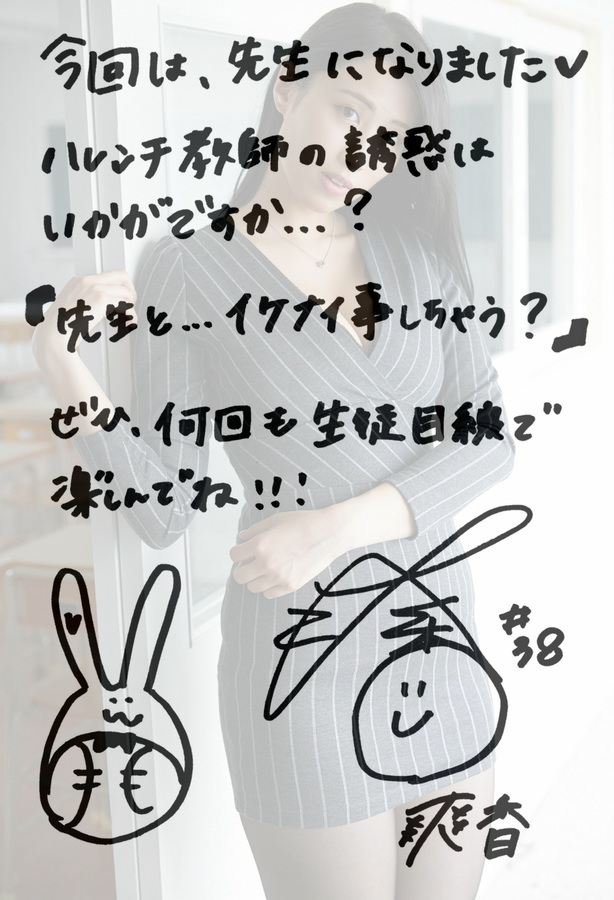 今回は、先生になりました♡
ハレンチ教師の誘惑は
いかがですか…？
『先生と…イケナイ事しちゃう？』
ぜひ、何回も生徒目線で
楽しんでね!!!
#38
爽香